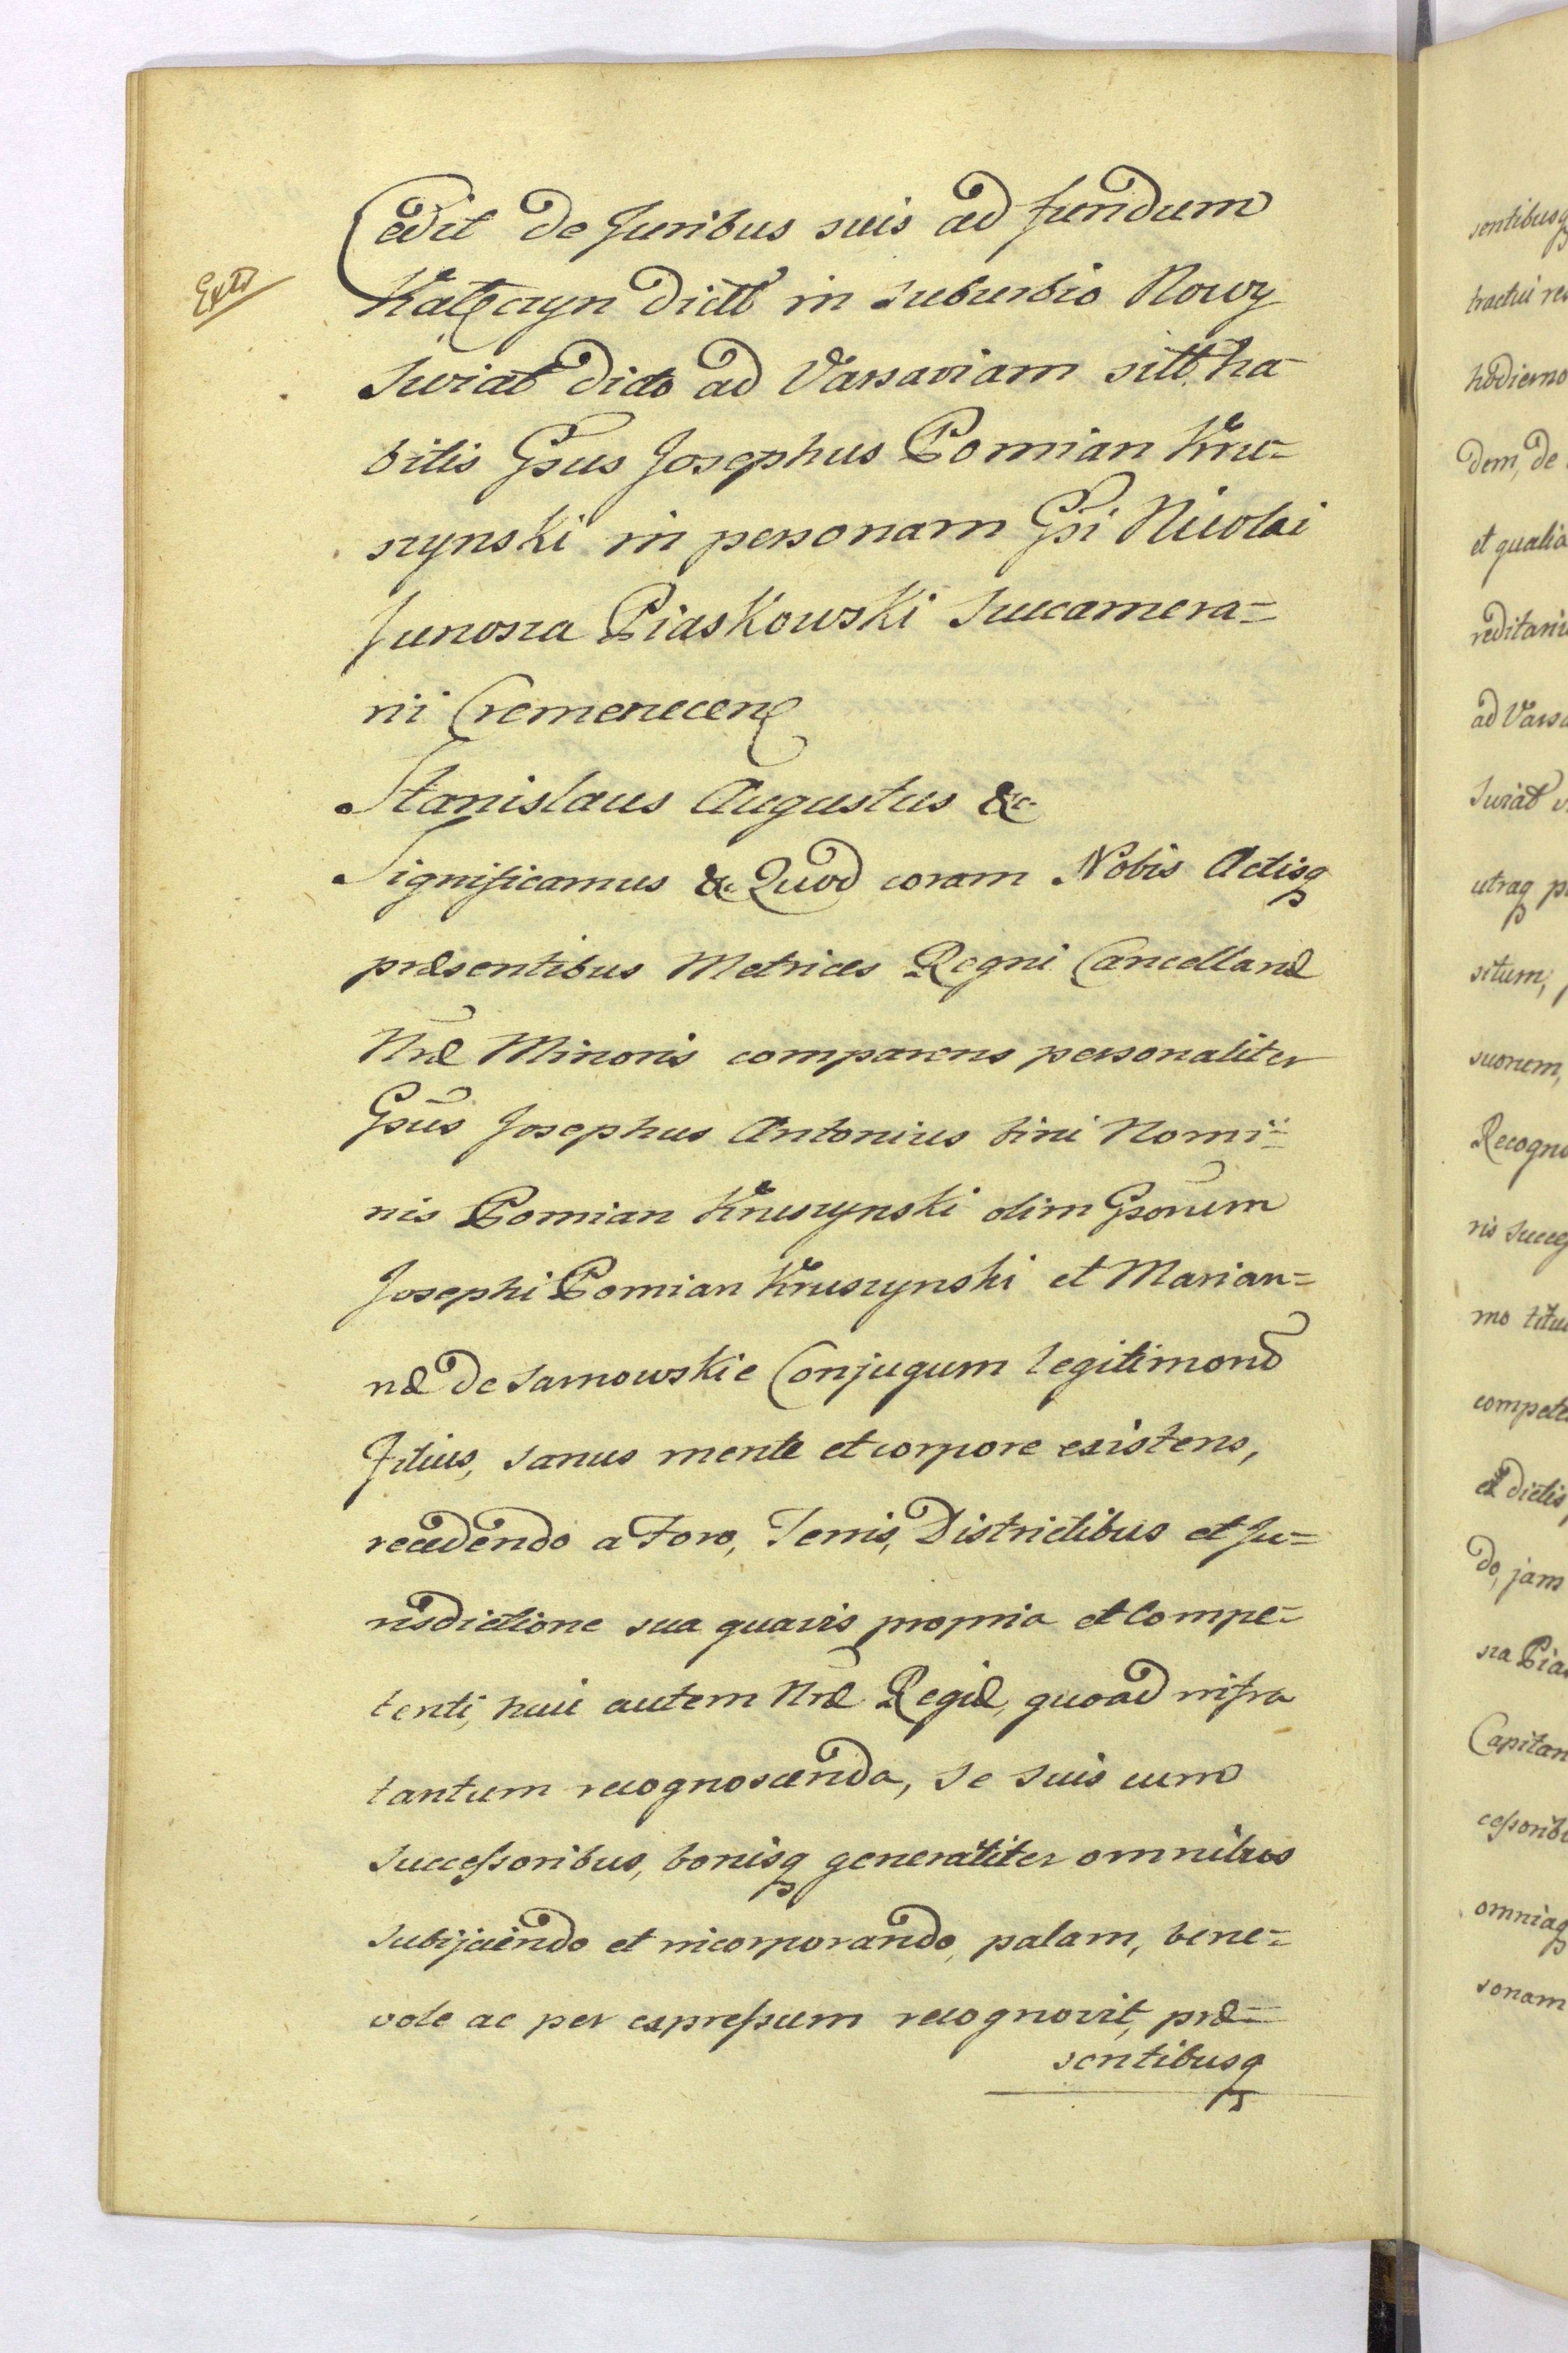 Extr
Cedit de Juribus suis ad fundum
Kałęczyn dictt in suburbio Nowy
Swiat dicto ad Varsaviam sitt. ha-
bitis Gsus Josephus Pomian Kru=
szynski in personam Gsi Nicolai
Junosza Piaskowski Succamera=
rii Cremenecen
Stanislaus Augustus &c.
Significamus &c. Quod coram Nobis Actisq
præsentibus Metrices Regni Cancellariæ
Nræ Minoris comparens personaliter
Gsus Josephus Antonius bini Nomi=
nis Pomian Kruszynski olim Gsorum
Josephi Pomian Kruszynski et Marian=
næ de Sarnowskie Conjugum legitimorũ
Filius, sanus mente et corpore existens,
recedendo a Foro, Terris, Districtibus et Ju=
risdictione sua quavis propria et Compe=
tenti, huic autem Nræ Regiæ, quoad infra
tantum recognoscenda, se suis cum
Successoribus, bonisq generaliter omnibus
subijciendo et incorporando, palam, bene=
vole ac per expressum recognovit, præ=
sentibusq
sentibusq
tractui
hodierno
dem, de
et qualia
ad
Swiat
utraq
situm,
suorum,
ris
mo
et dictis
do, jam
sza
omniaq
sonam